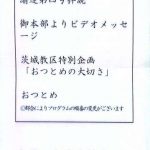 御本部よりビデオメッセ
ージ
茨城教区特別企画
「おつとめの大切さ」
おつとめ
◎都合によりプログラムの順番の変更がございます